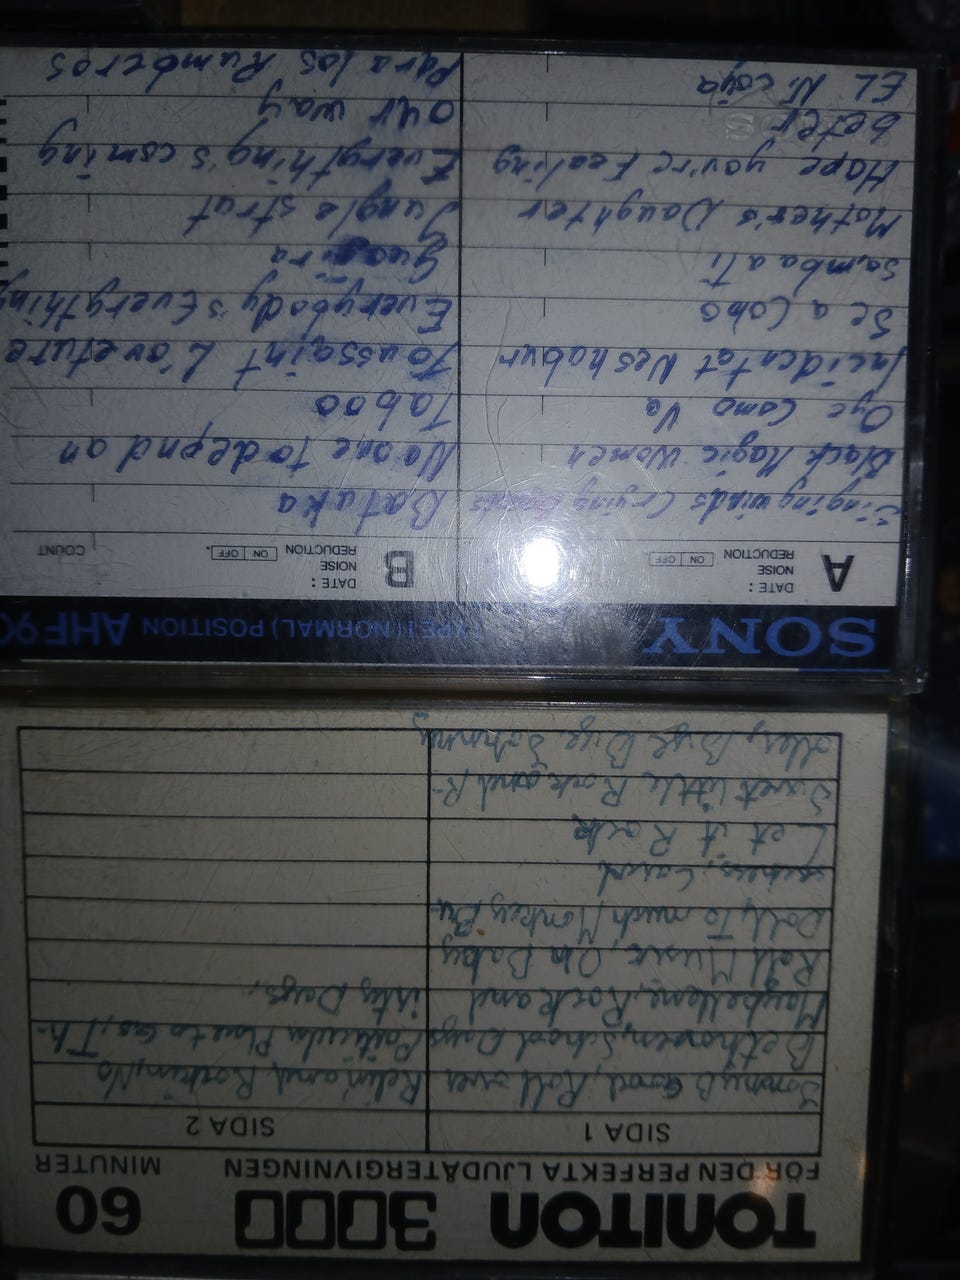 TONITON 3000 60
FÖR DEN PERFEKTA LJUDÅTERGIVNINGEN MINUTER
SIDA 1
Jonny B Good, Roll over
Bethoven, School Days
Maybellene, Rock and
Roll Music, Oh Baby
Doll, To much Monkey Bu-
siness, Carol
Let it Rock
Sweet little Rock and R-
oller, Bye Bye Johnny
SIDA 2
Relin and Rockin, No
Paticular Place to Go, Th-
irty Days,
SONY TYPE I (NORMAL) POSITION AHF 90
A
DATE:
NOISE
REDUCTION
ON OFF
Singing winds Crying Beasts
Black Magic Women
Oye Como Va
Incident at Neshabur
Se a Cabo
Samba a Ti
Mother's Daughter
Hope you're Feeling
beter
EL Nicoya
B
DATE:
NOISE
REDUCTION
ON OFF
COUNT
Batuka
No one to depnd on
Taboo
Toussaint L'oveture
Everybody's Everything
Guajira
Jungle strut
Everything's coming
our way
Para los Rumberos
SONY